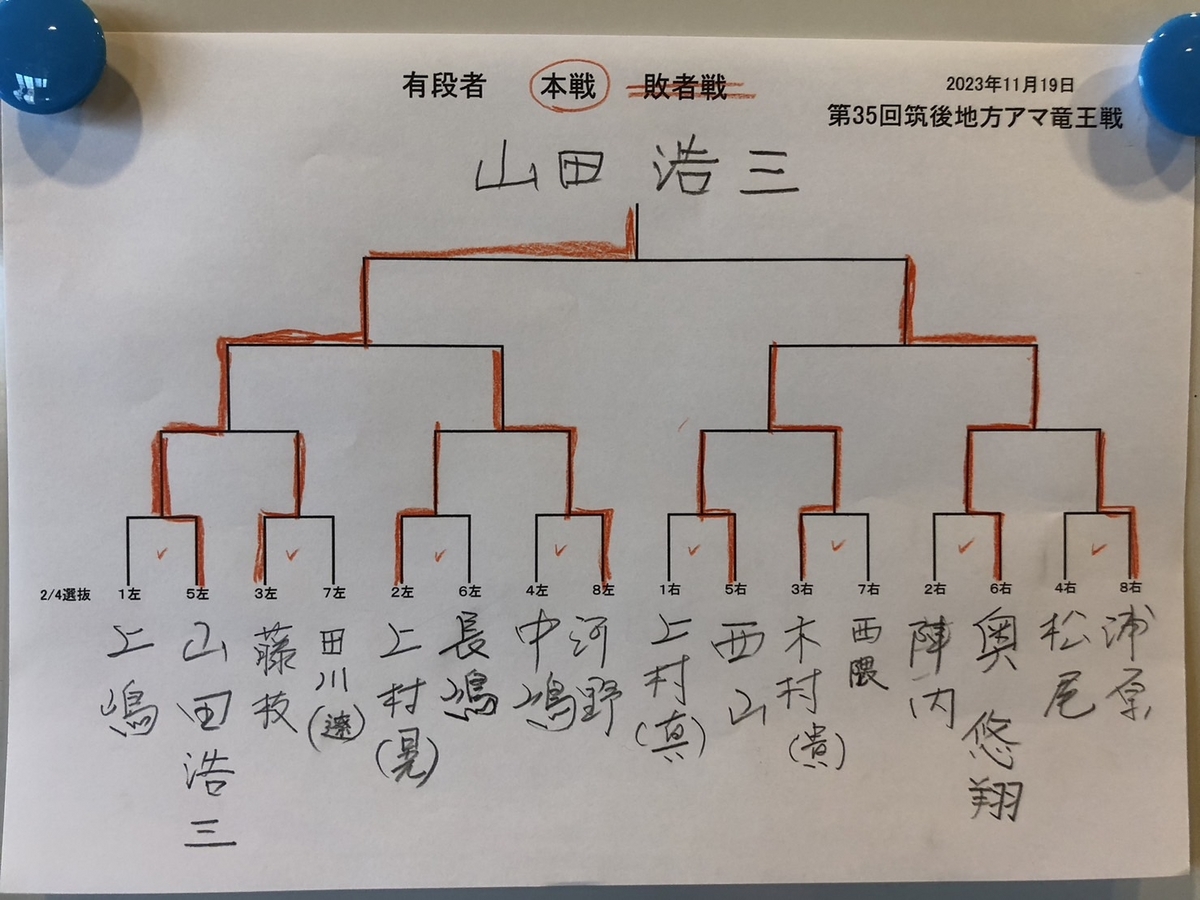 有段者 本戦 敗者戦
2023年11月19日
第35回筑後地方アマ竜王戦
山田 浩三
2/4選抜 1左 5左 3左 7左 2左 6左 4左 8左 1右 5右 3右 7右 2右 6右 4右 8右
上嶋
山田浩三
藤枝
田川(遼)
上村(晃)
長嶋
中嶋
河野
上村(真)
西山
木村(貴)
西隈
陣内
奥 悠翔
松尾
浦原